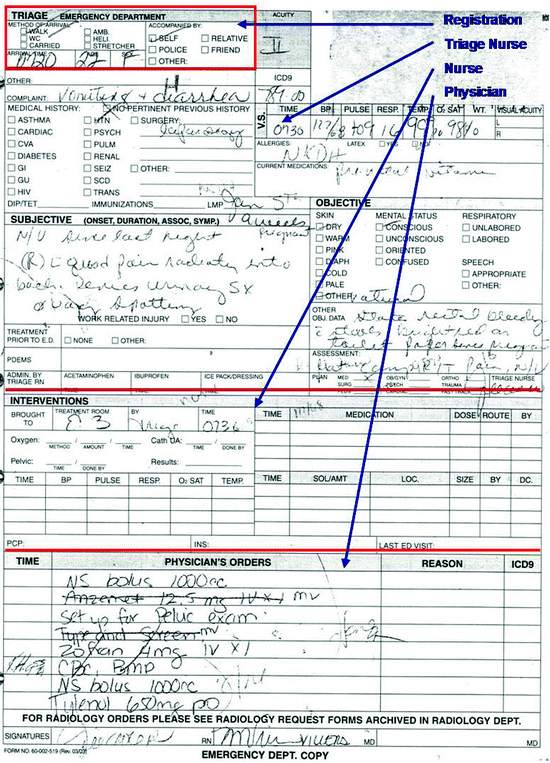 TRIAGE EMERGENCY DEPARTMENT
ACUITY
Registration
METHOD OF ARRIVAL ACCOMPANIED BY:
WALK AMB. SELF RELATIVE
II
Triage Nurse
WC HELI. POLICE FRIEND
CARRIED STRETCHER OTHER:
Nurse
ARRIVAL TIME
0720 22 F
Physician
OTHER: ICD9
COMPLAINT: Vomiting & diarrhea 789.00
MEDICAL HISTORY: NO PERTINENT PREVIOUS HISTORY
V.S. TIME BP PULSE RESP. TEMP. O2 SAT WT. VISUAL ACUITY
ASTHMA HTN SURGERY:
0730 109 16 98% L
CARDIAC PSYCH
R
CVA PULM
ALLERGIES: LATEX YES NO
DIABETES RENAL
NKDA
GI SEIZ OTHER:
CURRENT MEDICATIONS:
GU SCD
prenatal vitamin
HIV TRANS
DIP/TET IMMUNIZATIONS LMP Jan 5th
OBJECTIVE
SUBJECTIVE (ONSET, DURATION, ASSOC, SYMP.) pregnant
SKIN MENTAL STATUS RESPIRATORY
N/V since last night
DRY CONSCIOUS UNLABORED
WARM UNCONSCIOUS LABORED
(R) L quad pain radiating into
PINK ORIENTED
DIAPH CONFUSED SPEECH
back. Denies urinary SX
COLD APPROPRIATE
PALE OTHER:
or vag spotting
OTHER
WORK RELATED INJURY YES NO
OTHER OBJ. DATA States rectal bleeding
TREATMENT PRIOR TO E.D. NONE OTHER:
toilet paper since
POEMS
ASSESSMENT:
Pain, N/V
ADMIN. BY TRIAGE RN ACETAMINOPHEN IBUPROFEN ICE PACK/DRESSING
PLAN MED SURG OB/GYN PSYCH ORTHO TRAUMA FAST TRACK TRIAGE NURSE
INTERVENTIONS
BROUGHT TO TREATMENT ROOM BY TIME
TIME MEDICATION DOSE ROUTE BY
3 0736
Oxygen: Cath UA:
METHOD AMOUNT TIME TIME DONE BY
Pelvic: Results:
TIME DONE BY
TIME BP PULSE RESP. O2 SAT TEMP.
TIME SOL/AMT LOC. SIZE BY DC.
PCP: INS: LAST ED VISIT:
TIME PHYSICIAN'S ORDERS REASON ICD9
NS bolus 1000cc
Anzemet 12.5 mg IV x 1 mv
Set up for Pelvic exam
Type and Screen mv
Zofran 4mg IV x 1
CBC, Bmp
NS bolus 1000cc
Tylenol 650mg po
FOR RADIOLOGY ORDERS PLEASE SEE RADIOLOGY REQUEST FORMS ARCHIVED IN RADIOLOGY DEPT.
SIGNATURES RN MD MD
FORM NO. 60-002-519
EMERGENCY DEPT. COPY